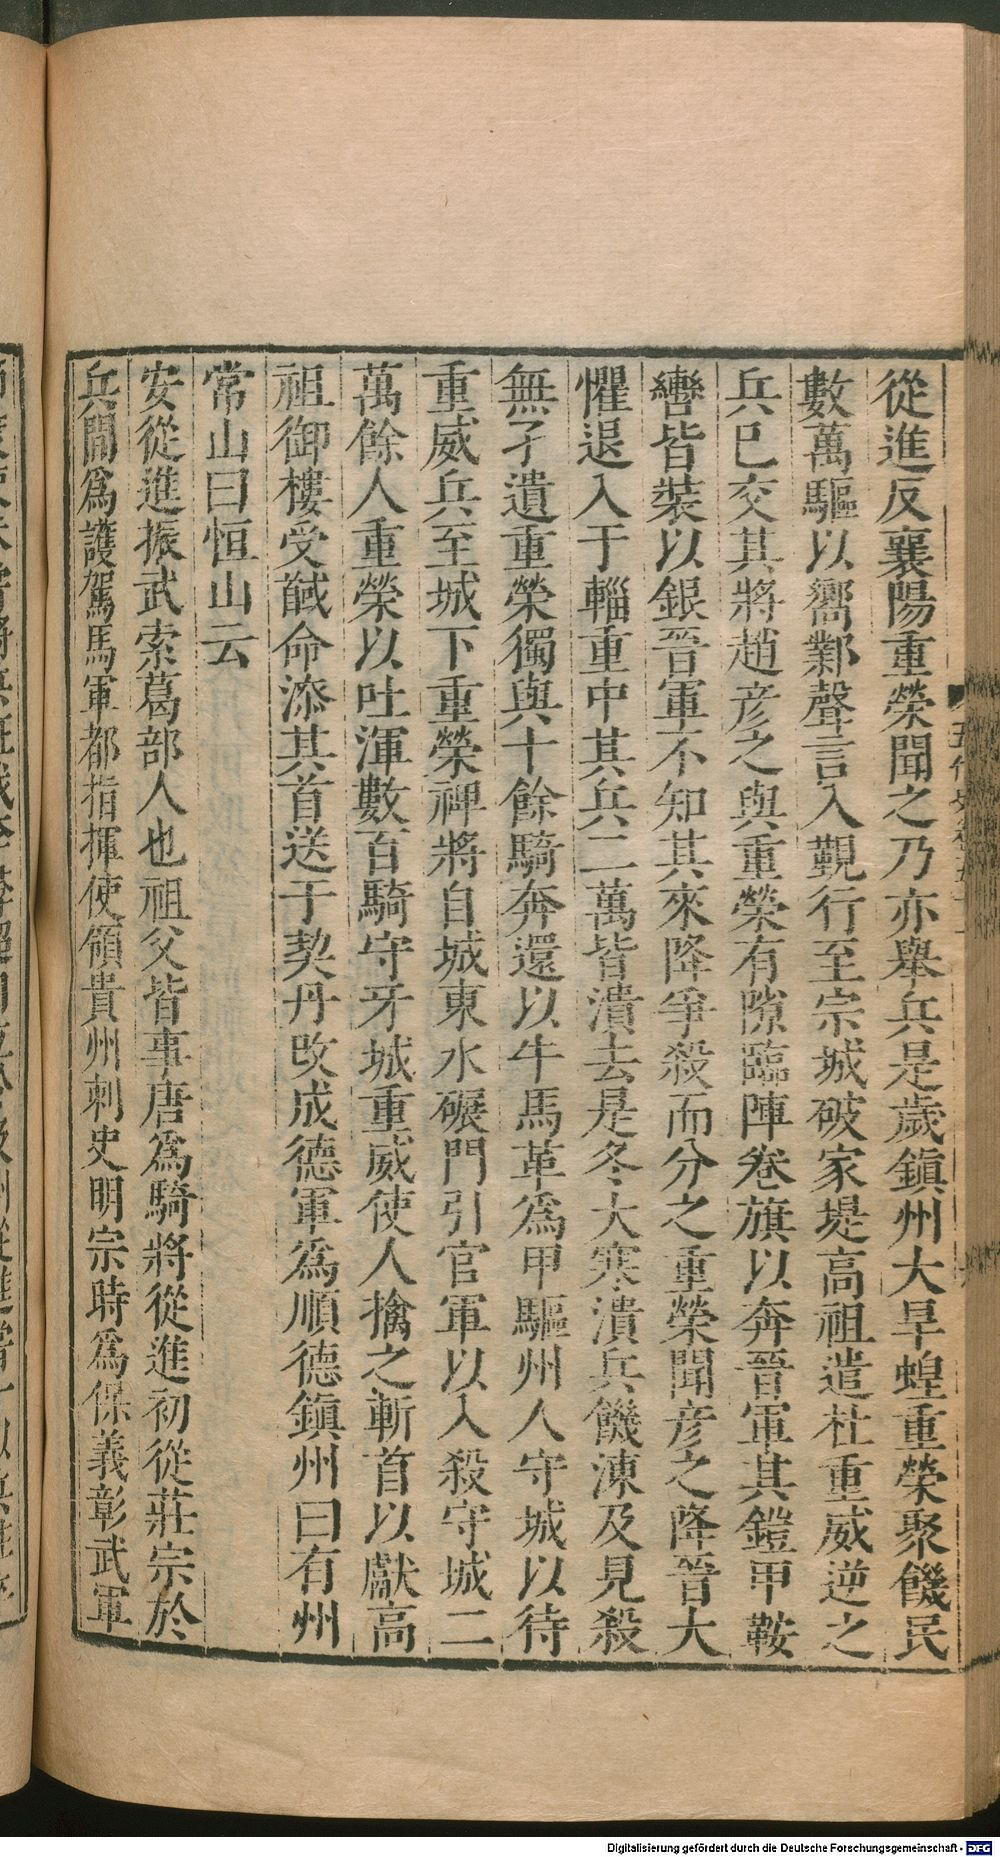 從進反襄陽重榮聞之乃亦舉兵是歲鎮州大旱蝗重榮聚饑民
數萬驅以嚮鄴聲言入覲行至宗城破家堤高祖遣杜重威逆之
兵已交其將趙彥之與重榮有隙臨陣卷旗以奔晉軍其鎧甲鞍
轡皆裝以銀晉軍不知其來降爭殺而分之重榮聞彥之降晉大
懼退入于輜重中其兵二萬皆潰去是冬大寒潰兵饑凍及見殺
無孑遺重榮獨與十餘騎奔還以牛馬革爲甲驅州人守城以待
重威兵至城下重榮裨將自城東水碾門引官軍以入殺守城二
萬餘人重榮以吐渾數百騎守牙城重威使人擒之斬首以獻高
祖御樓受馘命漆其首送于契丹改成德軍爲順德鎮州曰有州
常山曰恒山云
安從進振武索葛部人也祖父皆事唐爲騎將從進初從莊宗於
兵間爲護駕馬軍都指揮使領貴州刺史明宗時爲保義彰武軍
Digitalisierung gefördert durch die Deutsche Forschungsgemeinschaft - DFG